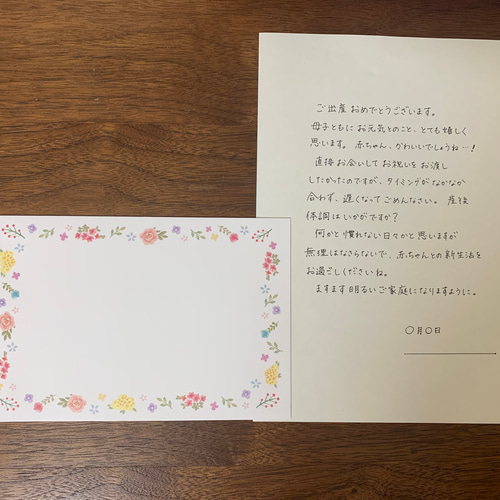 ご出産おめでとうございます。
母子ともにお元気とのこと、とても嬉しく
思います。赤ちゃん、かわいいでしょうね…！
直接お会いしてお祝いをお渡し
したかったのですが、タイミングがなかなか
合わず、遅くなってごめんなさい。産後
体調はいかがですか？
何かと慣れない日々かと思いますが
無理はなさらないで、赤ちゃんとの新生活を
お過ごしくださいね。
ますます明るいご家庭になりますように。
〇月〇日